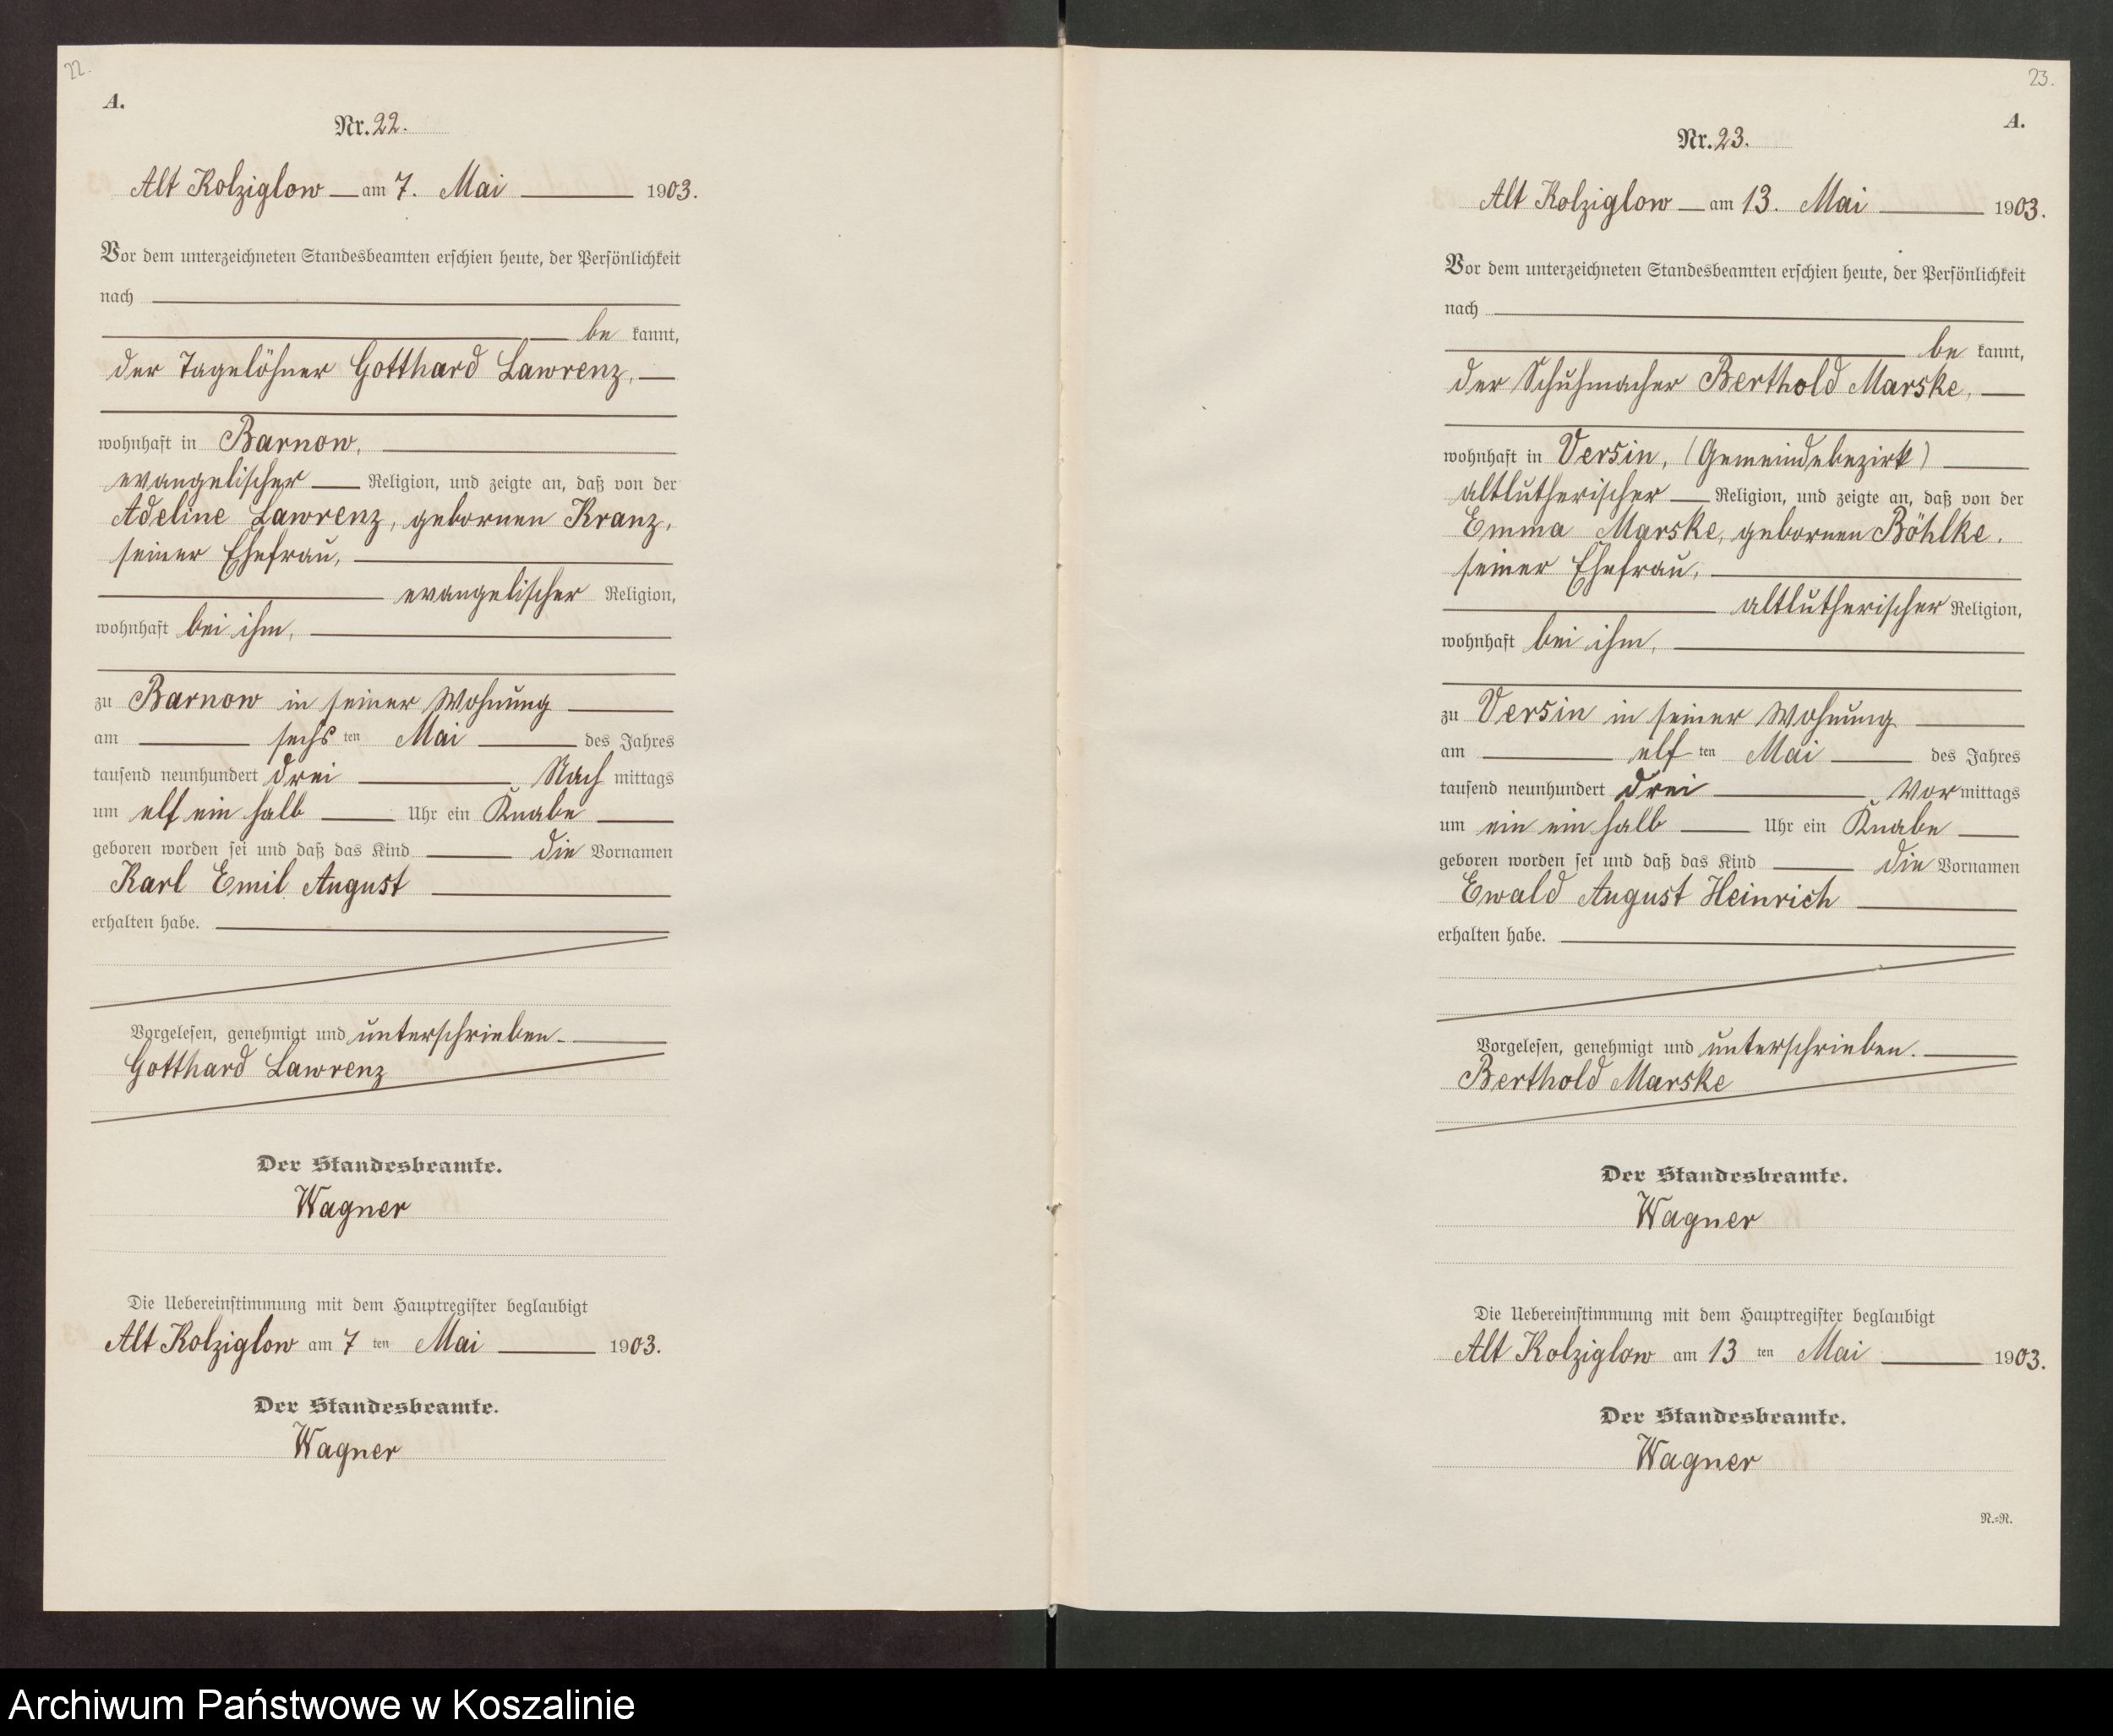 22.
A.
Nr. 22.
Alt Kolziglow am 7. Mai 1903.
Vor dem unterzeichneten Standesbeamten erschien heute, der Persönlichkeit
nach
be kannt,
der Tagelöhner Gotthard Lawrenz,
wohnhaft in Barnow,
evangelischer Religion, und zeigte an, daß von der
Adeline Lawrenz, gebornen Kranz,
seiner Ehefrau,
evangelischer Religion,
wohnhaft bei ihm,
zu Barnow in seiner Wohnung
am sechs ten Mai des Jahres
tausend neunhundert drei Nach mittags
um elf ein halb Uhr ein Knabe
geboren worden sei und daß das Kind die Vornamen
Karl Emil August
erhalten habe.
Vorgelesen, genehmigt und unterschrieben.
Gotthard Lawrenz
Der Standesbeamte.
Wagner
Die Uebereinstimmung mit dem Hauptregister beglaubigt
Alt Kolziglow am 7 ten Mai 1903.
Der Standesbeamte.
Wagner
23.
A.
Nr. 23.
Alt Kolziglow am 13. Mai 1903.
Vor dem unterzeichneten Standesbeamten erschien heute, der Persönlichkeit
nach
be kannt,
der Schuhmacher Berthold Marske,
wohnhaft in Versin, (Gemeindebezirk)
altlutherischer Religion, und zeigte an, daß von der
Emma Marske, gebornen Böhlke,
seiner Ehefrau,
altlutherischer Religion,
wohnhaft bei ihm,
zu Versin in seiner Wohnung
am elf ten Mai des Jahres
tausend neunhundert drei Vor mittags
um ein ein halb Uhr ein Knabe
geboren worden sei und daß das Kind die Vornamen
Ewald August Heinrich
erhalten habe.
Vorgelesen, genehmigt und unterschrieben.
Berthold Marske
Der Standesbeamte.
Wagner
Die Uebereinstimmung mit dem Hauptregister beglaubigt
Alt Kolziglow am 13 ten Mai 1903.
Der Standesbeamte.
Wagner
N.=R.
Archiwum Państwowe w Koszalinie